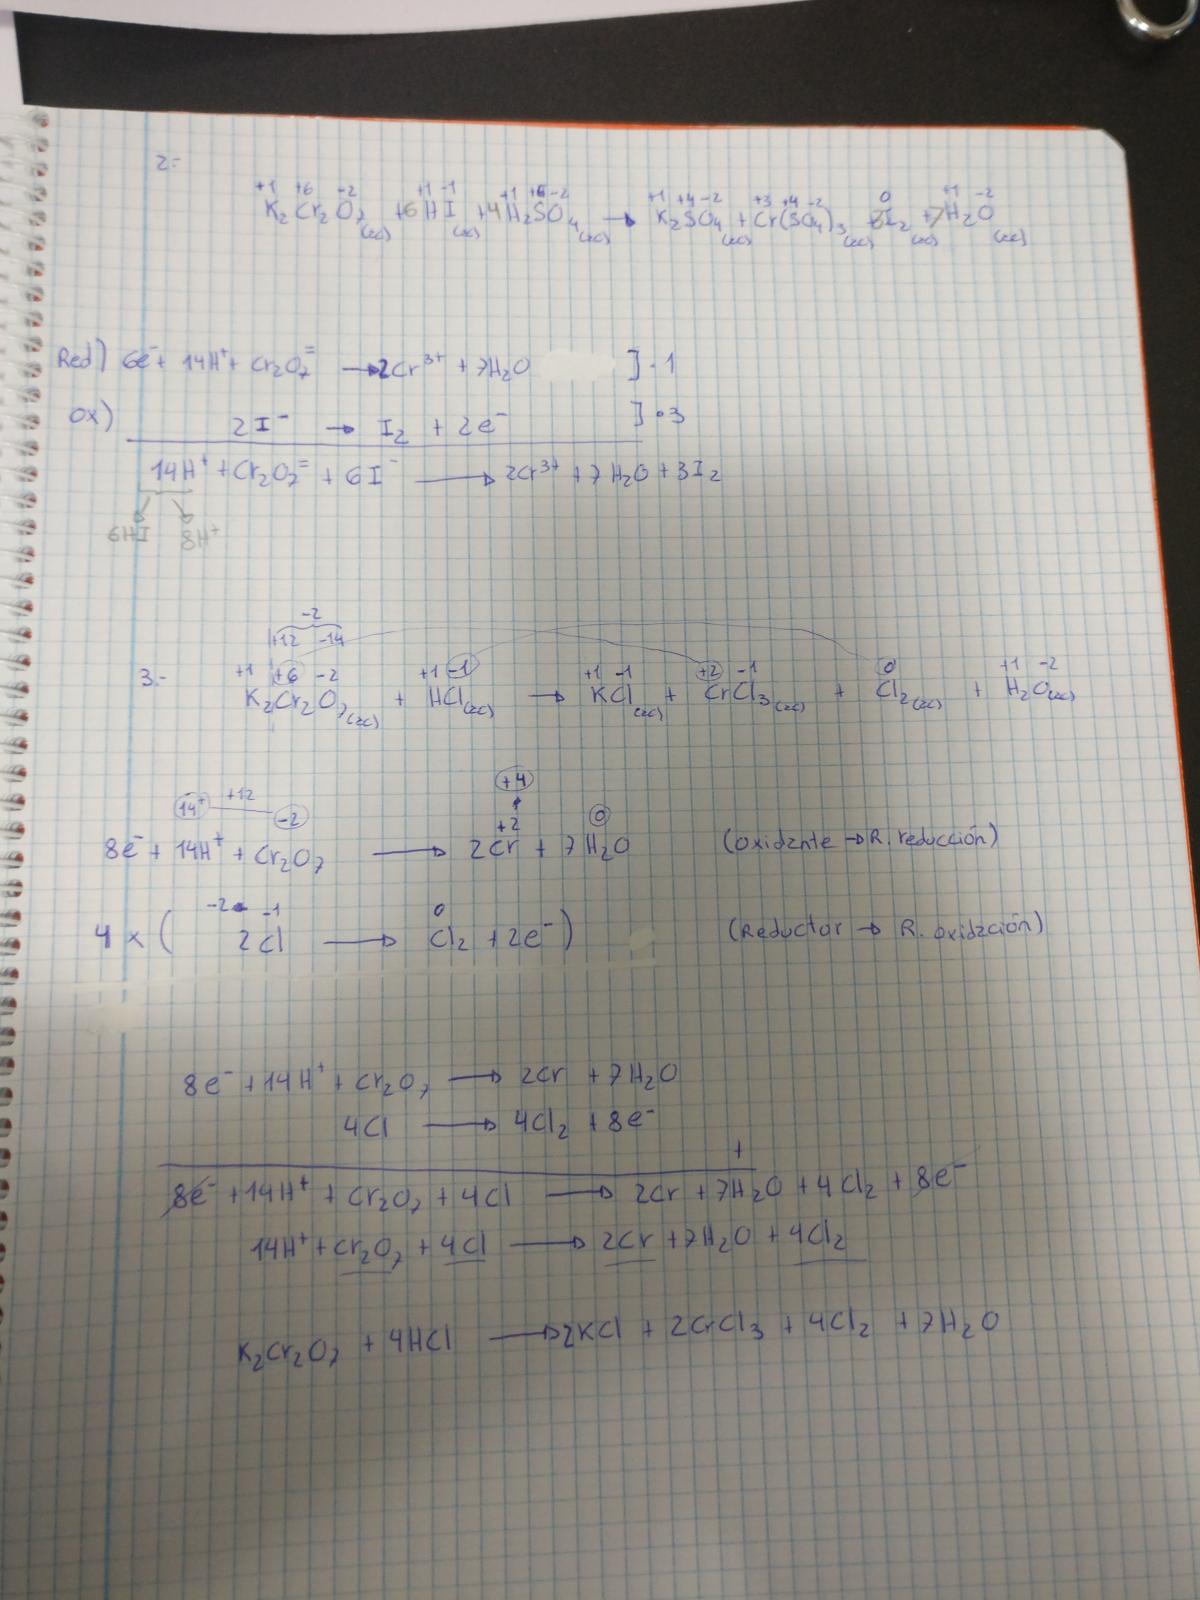 2.-
+1 +6 -2 +1 -1 +1 +6 -2 +1 +4 -2 +3 +4 -2 0 +1 -2
K₂Cr₂O₇(ac) + 6HI(ac) + 4H₂SO₄(ac) → K₂SO₄(ac) + Cr(SO₄)₃(ac) + 3I₂(ac) + 7H₂O(ac)
Red) 6e⁻ + 14H⁺ + Cr₂O₇⁼ → 2Cr³⁺ + 7H₂O ] · 1
Ox) 2I⁻ → I₂ + 2e⁻ ] · 3
14H⁺ + Cr₂O₇⁼ + 6I⁻ → 2Cr³⁺ + 7H₂O + 3I₂
6HI 8H⁺
-2
+12 -14
+1 +6 -2 +1 -1 +1 -1 +2 -1 0 +1 -2
3.- K₂Cr₂O₇(ac) + HCl(ac) → KCl(ac) + CrCl₃(ac) + Cl₂(ac) + H₂O(ac)
+4
14⁺ +12 -2 +2 0
8e⁻ + 14H⁺ + Cr₂O₇ → 2Cr + 7H₂O (oxidante → R. reducción)
-2 -1 0
4 x ( 2Cl → Cl₂ + 2e⁻ ) (Reductor → R. oxidación)
8e⁻ + 14H⁺ + Cr₂O₇ → 2Cr + 7H₂O
4Cl → 4Cl₂ + 8e⁻
+
8e⁻ + 14H⁺ + Cr₂O₇ + 4Cl → 2Cr + 7H₂O + 4Cl₂ + 8e⁻
14H⁺ + Cr₂O₇ + 4Cl → 2Cr + 7H₂O + 4Cl₂
K₂Cr₂O₇ + 4HCl → 2KCl + 2CrCl₃ + 4Cl₂ + 7H₂O